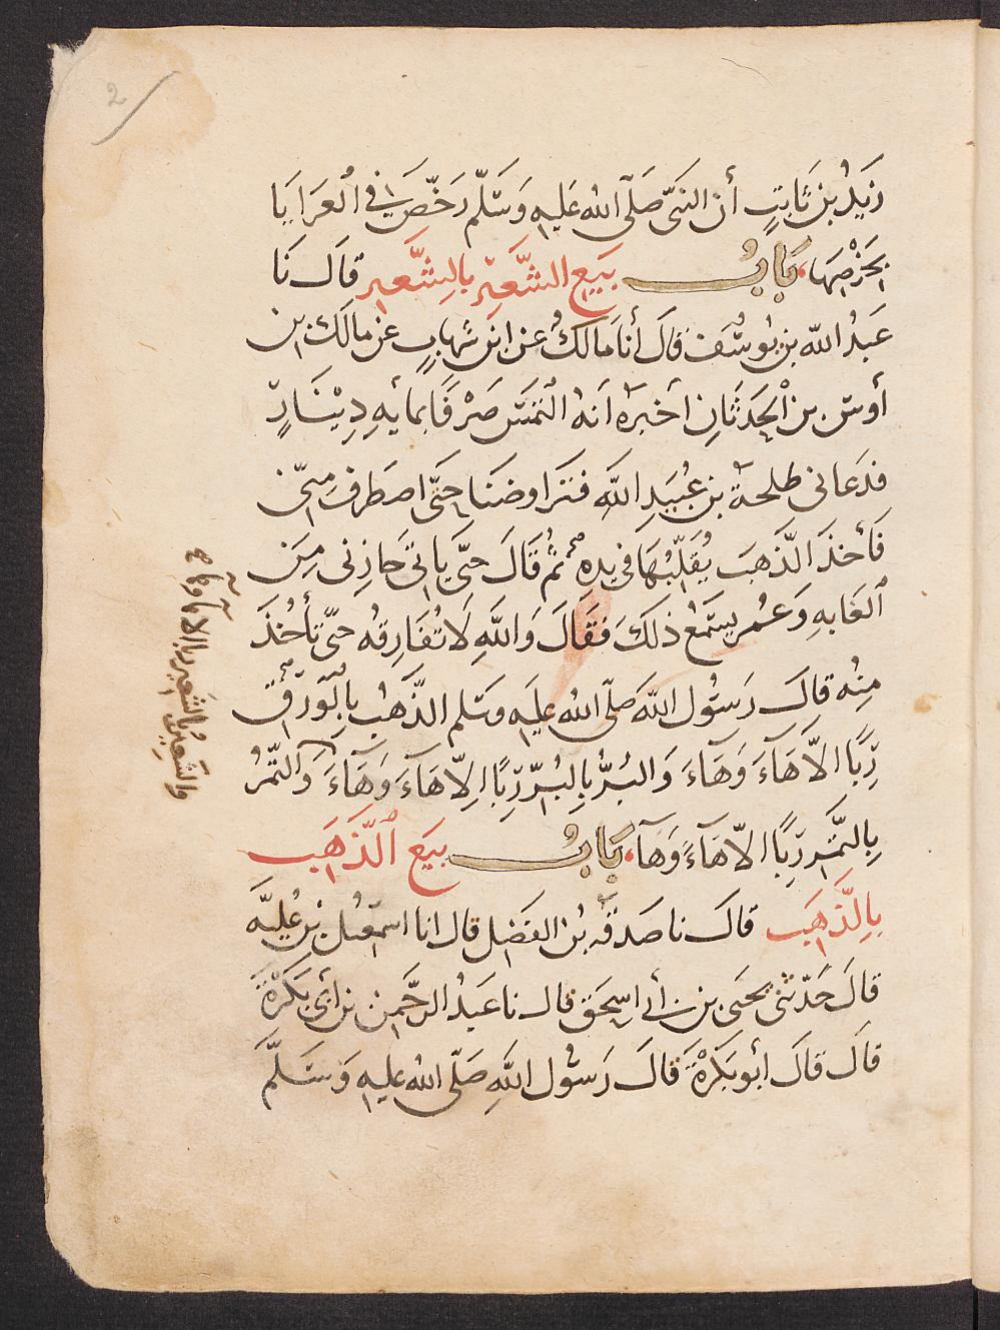 2
زَيدُ بن ثَابتٍ أن النَبىَّ صَلَّى اللهُ عَليهِ وَسَلّم رَخّصَ فِي الْعَرَايَا
بخَرْصِهَا، بَابُ بَيع الشَّعِيرِ بالشَّعيرِ قاَل نَا
عَبدُ الله بن يُوسُف قالَ أنا مَالكٌ عن ابن شهابٍ عن مالك بن
أوس بن الْحَدَثَانِ أخبرَه انَهُ الْتَمَسَ صَرْفًا بمائةِ دِيْنَارٍ
فدَعَانى طلحةُ بن عُبَيدِ اللهِ فتَراوضنَا حتَّى اصطَرفَ مِنّى
فَأخَذَ الذَّهبَ يُقَلّبُهَا فى يدِهِ ثُمّ قَالَ حتّى يَاتىَ خازِنى مِنَ
الغَابةِ وَعُمر يسَمَعُ ذلكَ فقَالَ وَاللهِ لَا تُفَارِقُه حتّى تَأخُذَ
مِنْه قالَ رَسُول الله صَلّى اللهُ عليَهِ وسَلم الذَّهبُ بالوَرِقِ
رِبًا الاَّ هَآءَ وَهَآءَ وَالبُرُّ بِالبُرّ رِبًا اِلاّ هَآءَ وَهَآءَ وَالتّمرُ
بِالتَّمرِ رِبًا الاّ هَآءَ وَهَآءَ، بَابُ بيَع الذَّهَبِ
بِالذَّهَبِ قالَ نا صَدقَةُ بنُ الفَضلِ قال انا اسمَعيل بن عُليَّه
قالَ حَدّثنى يحيَى بن أبى اسحَق قال نا عَبدُ الرحَّمن بن أبى بَكرْةَ
قاَل قالَ أبُو بَكرْةَ قالَ رَسُول اللهِ صَلّى اللهُ عليهِ وَسَلَّم
والشَعِيرُ بالشَعيرِ ربا الا هآ وهآ صح